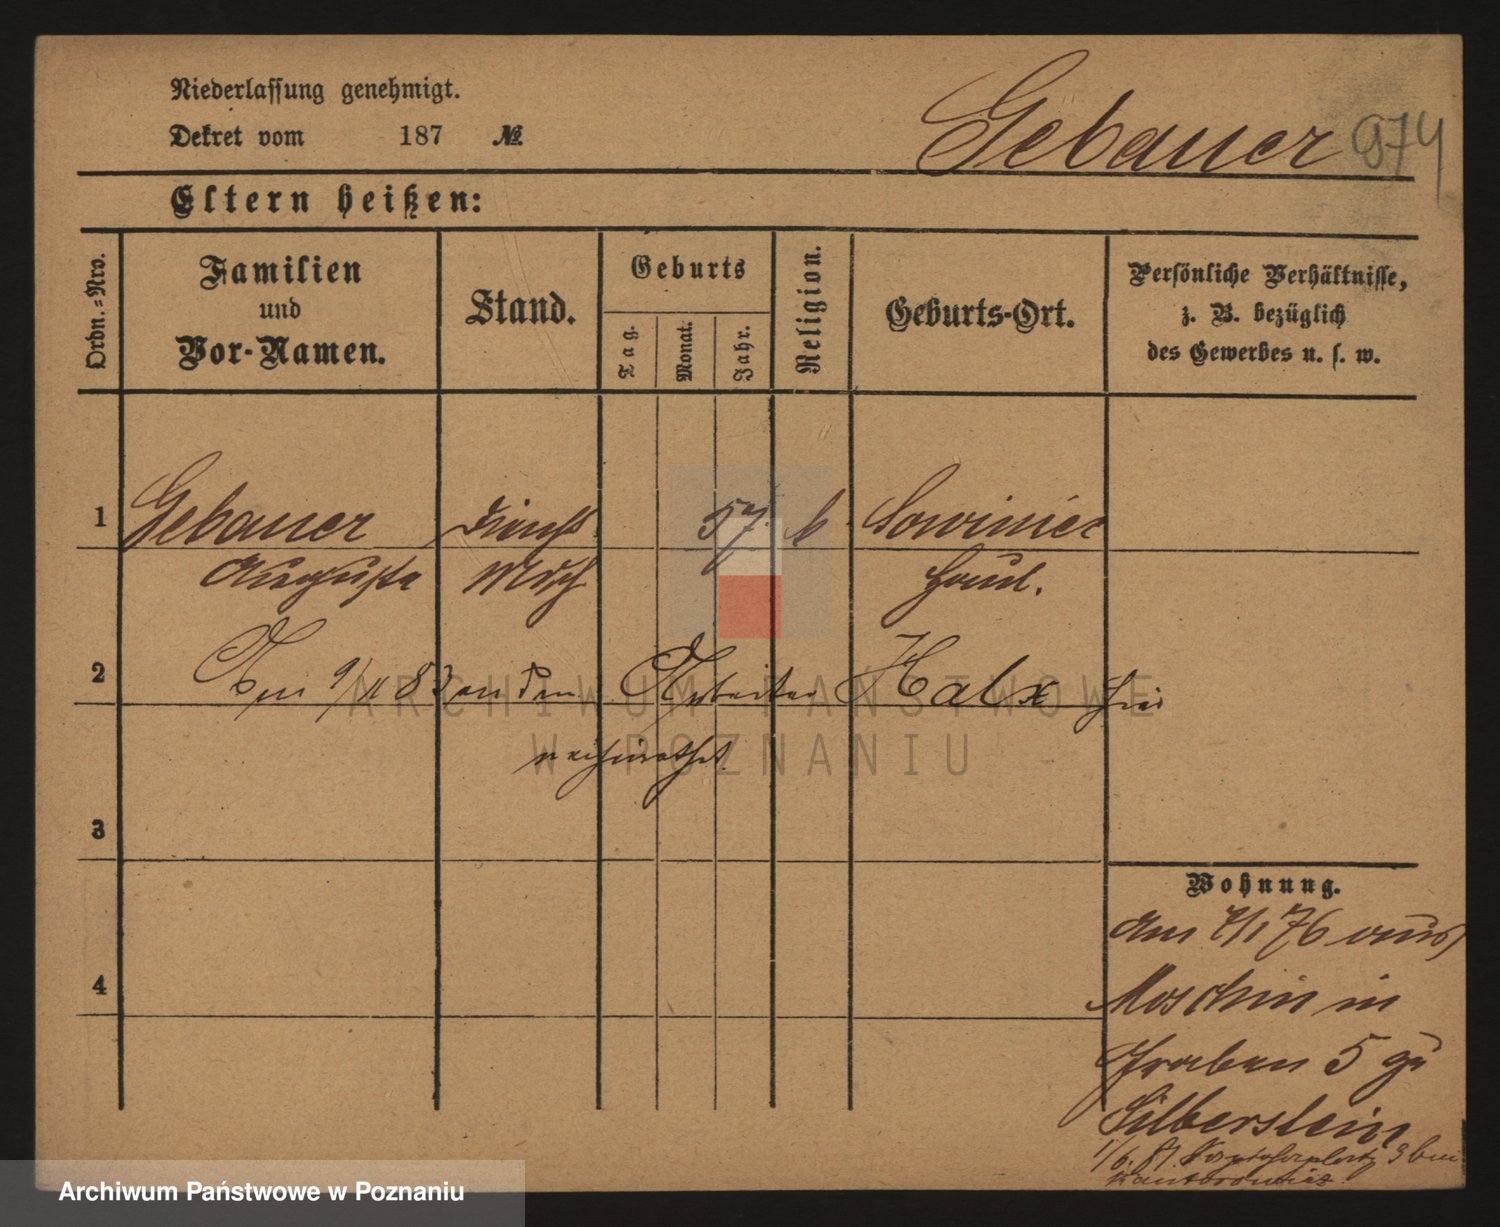 Niederlassung genehmigt.
Dekret vom 187 №
Gebauer 974
Eltern heißen:
Ordn.=Nro.
Familien
und
Vor-Namen.
Stand.
Geburts
Tag.
Monat.
Jahr.
Religion.
Geburts-Ort.
Persönliche Verhältnisse,
z. B. bezüglich
des Gewerbes u. s. w.
1 Gebauer Dienst 57. k Sowiniec
Auguste Mdch Haul.
2 Den 9/11 83 an den Arbeiter Halx hier
verheirathet.
3
4
Wohnung.
Am 7/1 76 aus
Moschin in
Graben 5 zu
Silberstein
1/6. 81. 9 bei
Kantorowicz.
ARCHIWUM PAŃSTWOWE
W POZNANIU
Archiwum Państwowe w Poznaniu